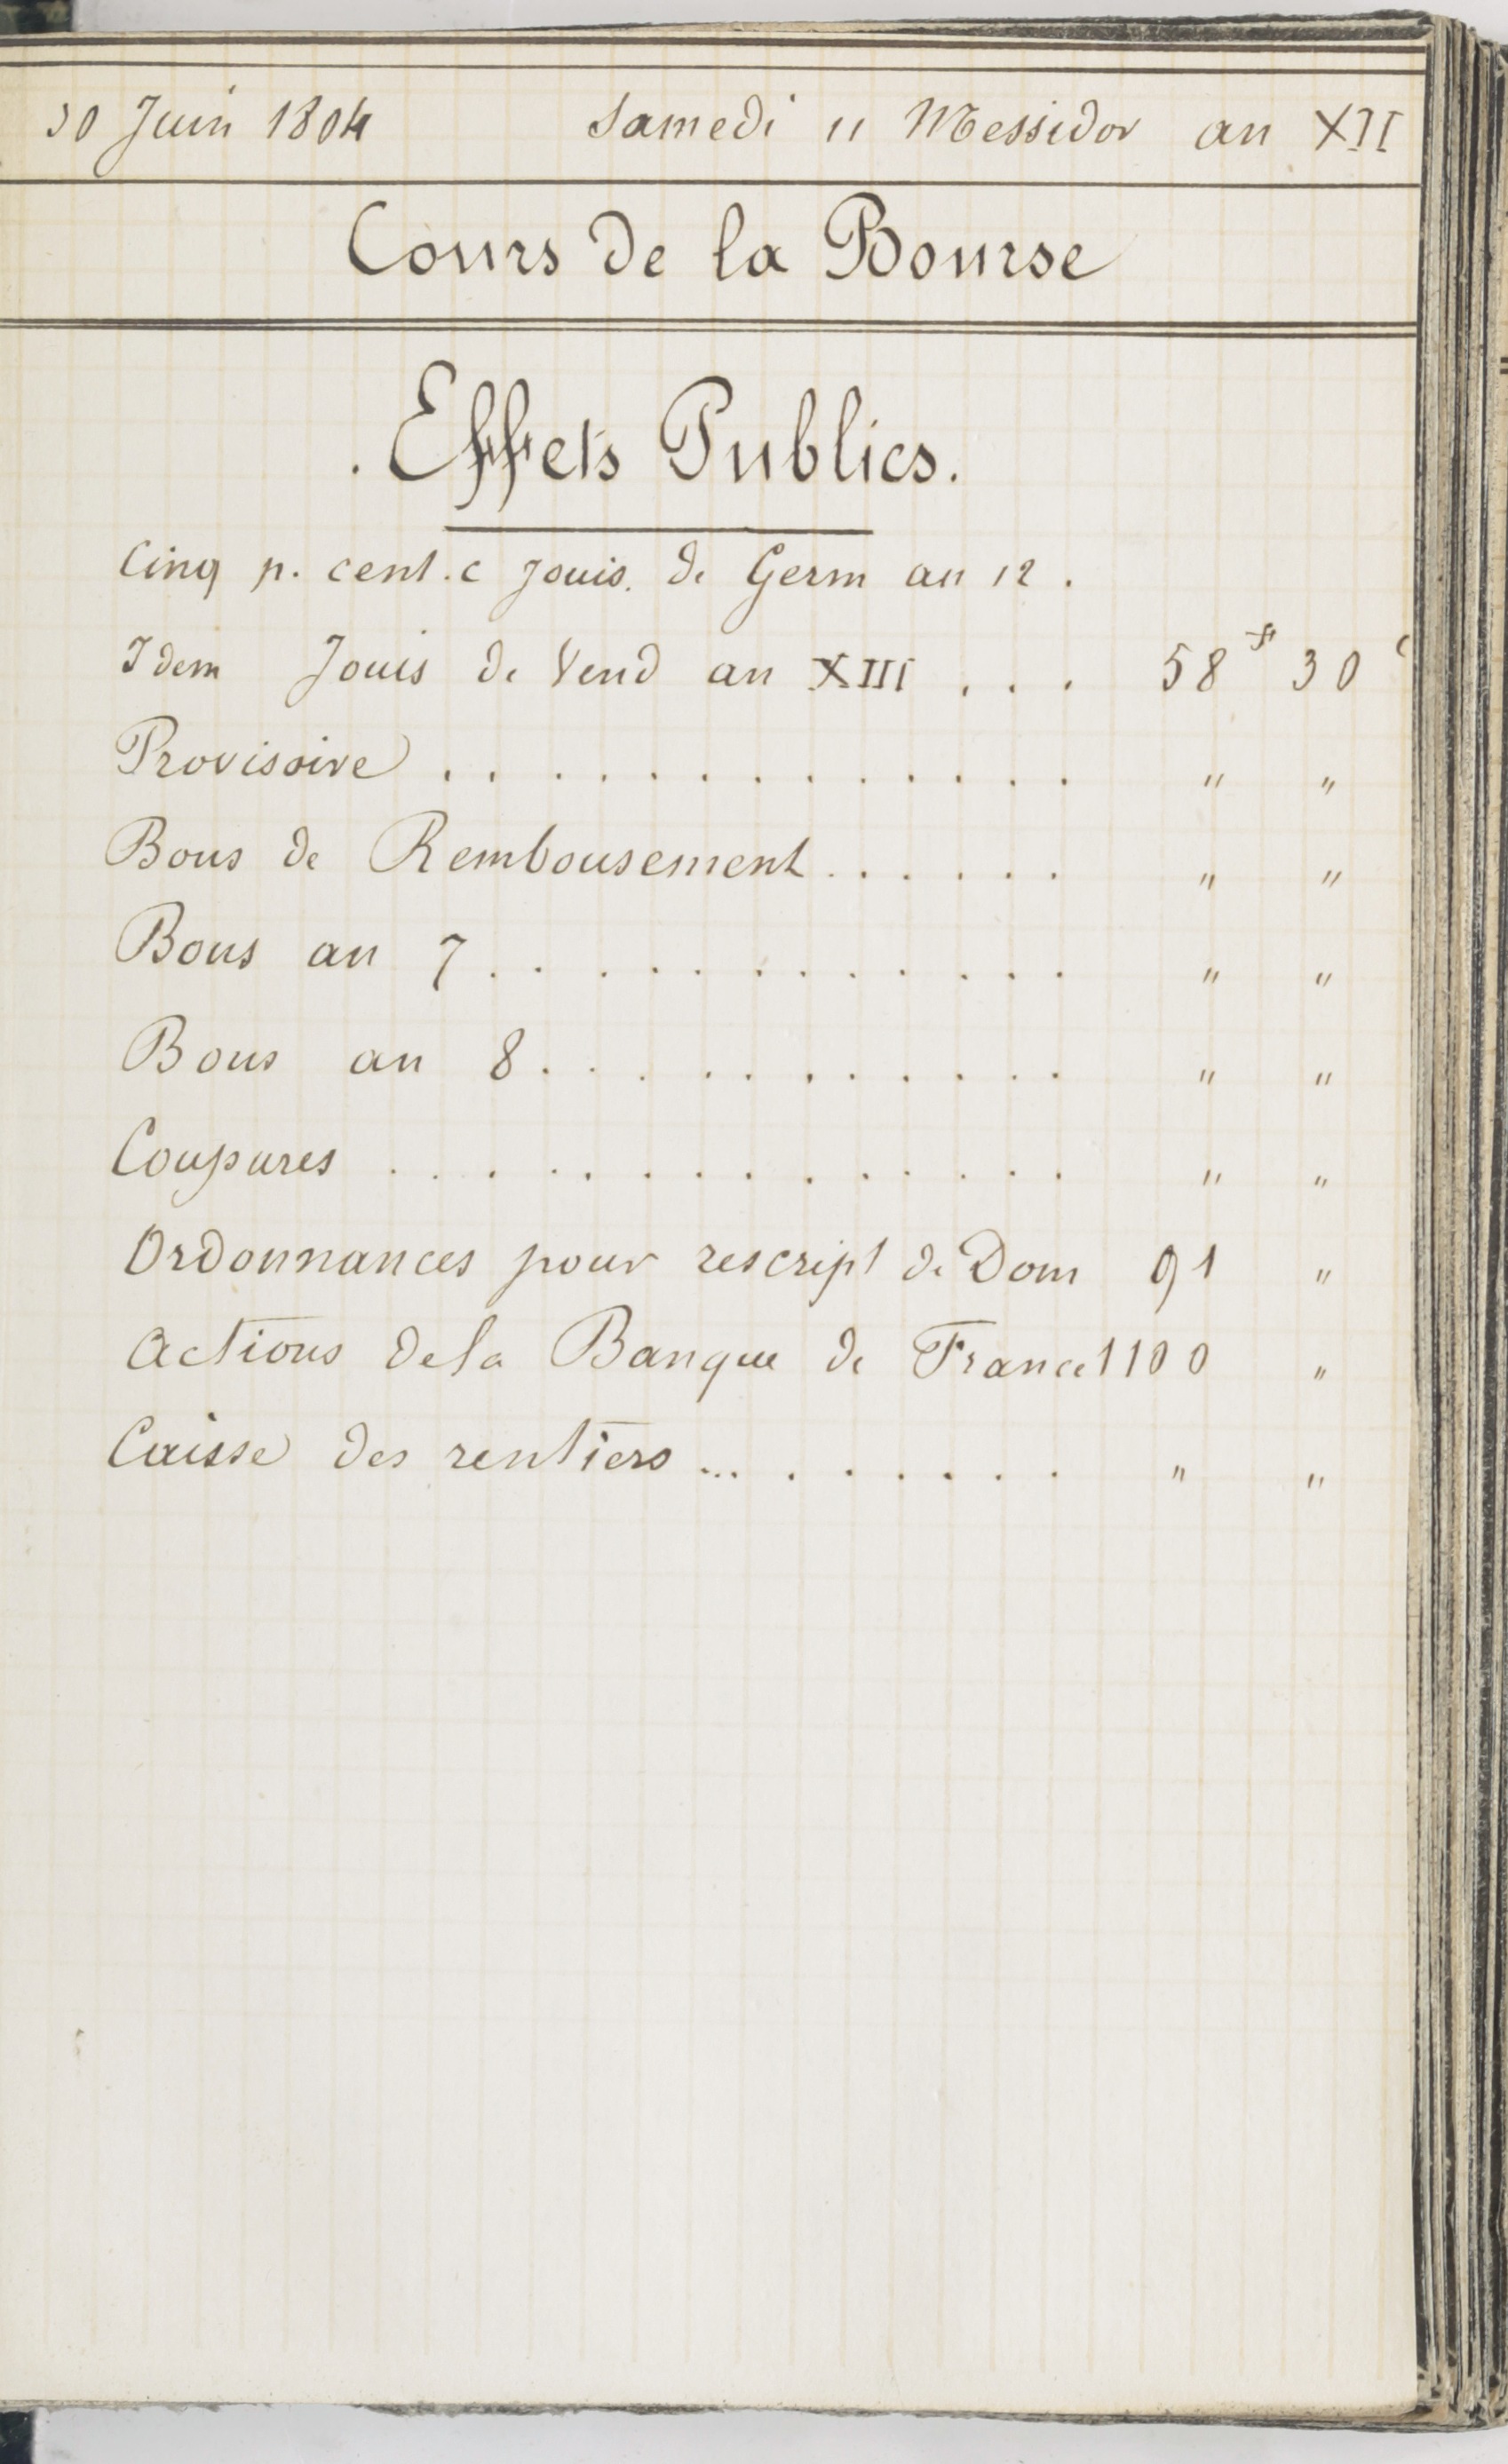 30 Juin 1804 Samedi 11 Messidor an XII
Cours de la Bourse
. Effets Publics.
Cinq p. cent. c Jouis. de Germ an 12 .
Idem Jouis de Vend an XIII . . . 58 f 30 c
Provisoire . . . . . . . . . . . . . " "
Bons de Rembousement . . . . . . " "
Bons an 7 . . . . . . . . . . . . " "
Bons an 8 . . . . . . . . . . . " "
Coupures . . . . . . . . . . . . . . " "
Ordonnances pour rescript de Dom 91 "
Actions de la Banque de France 1100 "
Caisse des rentiers ... . . . . . . " "